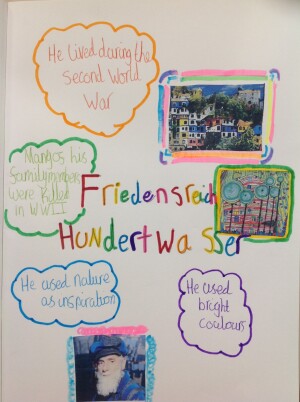 He lived during the
second World
War
Many of his
family members
were killed
in WWII
Friedensreich
Hundertwasser
He used nature
as inspiration
He used
bright
coulours